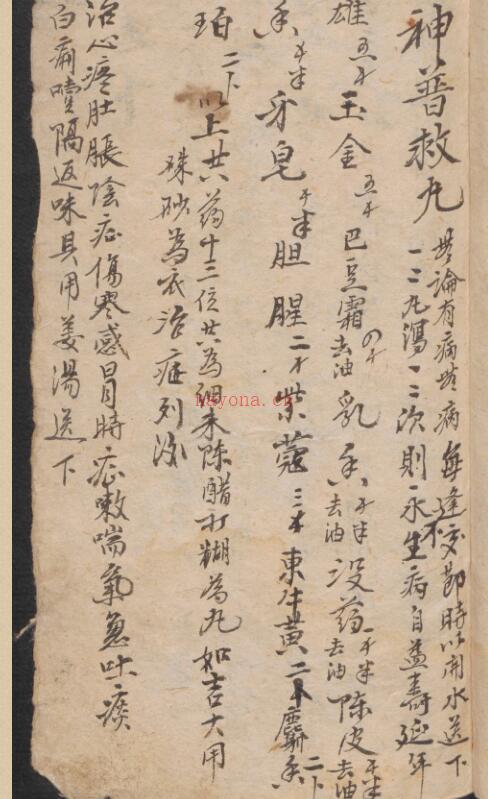 神普救九
無論有病無病每逢交節時以開水送下
一二九瀉一二次則永不生病自益壽延年
雄五牛玉金五牛巴豆霜去油の牛乳香牛半去油没药牛半去油陳皮牛半去油
香牛半牙皂牛半胆腥二牛紫蔻三牛東牛黄二牛麝香二卜
珀二卜以上共药十三位共為細末陈醋打糊為九如吉大用
硃砂為衣治症列
治心疼肚脹陰症傷寒感冒時症嗽喘氣急吐痰
白痢噎隔返味具用姜湯送下